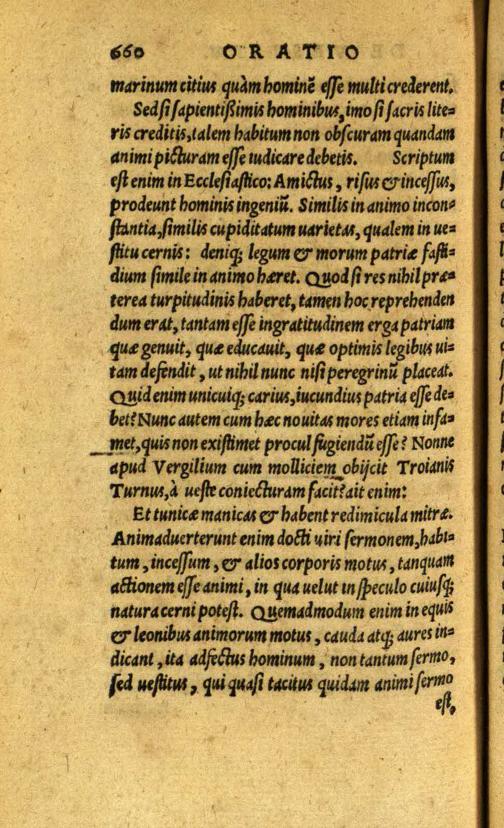 660 ORATIO
marinum citius quàm hominē esse multi crederent.
Sed si sapientißimis hominibus, imo si sacris lite=
ris creditis, talem habitum non obscuram quandam
animi picturam esse iudicare debetis. Scriptum
est enim in Ecclesiastico: Amictus, risus & incessus,
prodeunt hominis ingeniū. Similis in animo incon=
stantia, similis cupiditatum uarietas, qualem in ue=
stitu cernis: deniq; legum & morum patriæ fasti=
dium simile in animo hæret. Quod si res nihil præ=
terea turpitudinis haberet, tamen hoc reprehenden
dum erat, tantam esse ingratitudinem erga patriam
quæ genuit, quæ educauit, quæ optimis legibus ui=
tam defendit, ut nihil nunc nisi peregrinū placeat.
Quid enim unicuiq; carius, iucundius patria esse de=
bet? Nunc autem cum hæc nouitas mores etiam infa=
met, quis non existimet procul fugiendū esse? Nonne
apud Vergilium cum molliciem obijcit Troianis
Turnus, à ueste coniecturam facit? ait enim:
Et tunicæ manicas & habent redimicula mitræ.
Animaduerterunt enim docti uiri sermonem, habi=
tum, incessum, & alios corporis motus, tanquam
actionem esse animi, in qua uelut in speculo cuiusq;
natura cerni potest. Quemadmodum enim in equis
& leonibus animorum motus, cauda atq; aures in=
dicant, ita adfectus hominum, non tantum sermo,
sed uestitus, qui quasi tacitus quidam animi sermo
est,